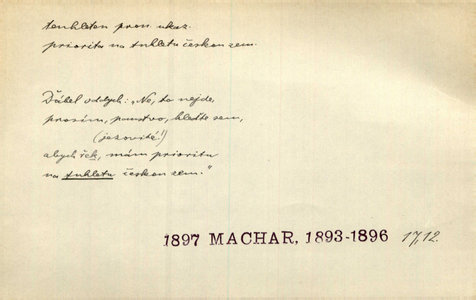 tenhleten prvn ukaz
prioritu na tuhletu českou zem.
Ďábel oddych: „No, to nejde,
prosím, panstvo, hleďte sem,
(jezovité!)
abych řek, mám prioritu
na tuhletu českou zem."
1897 MACHAR, 1893-1896 17,12.